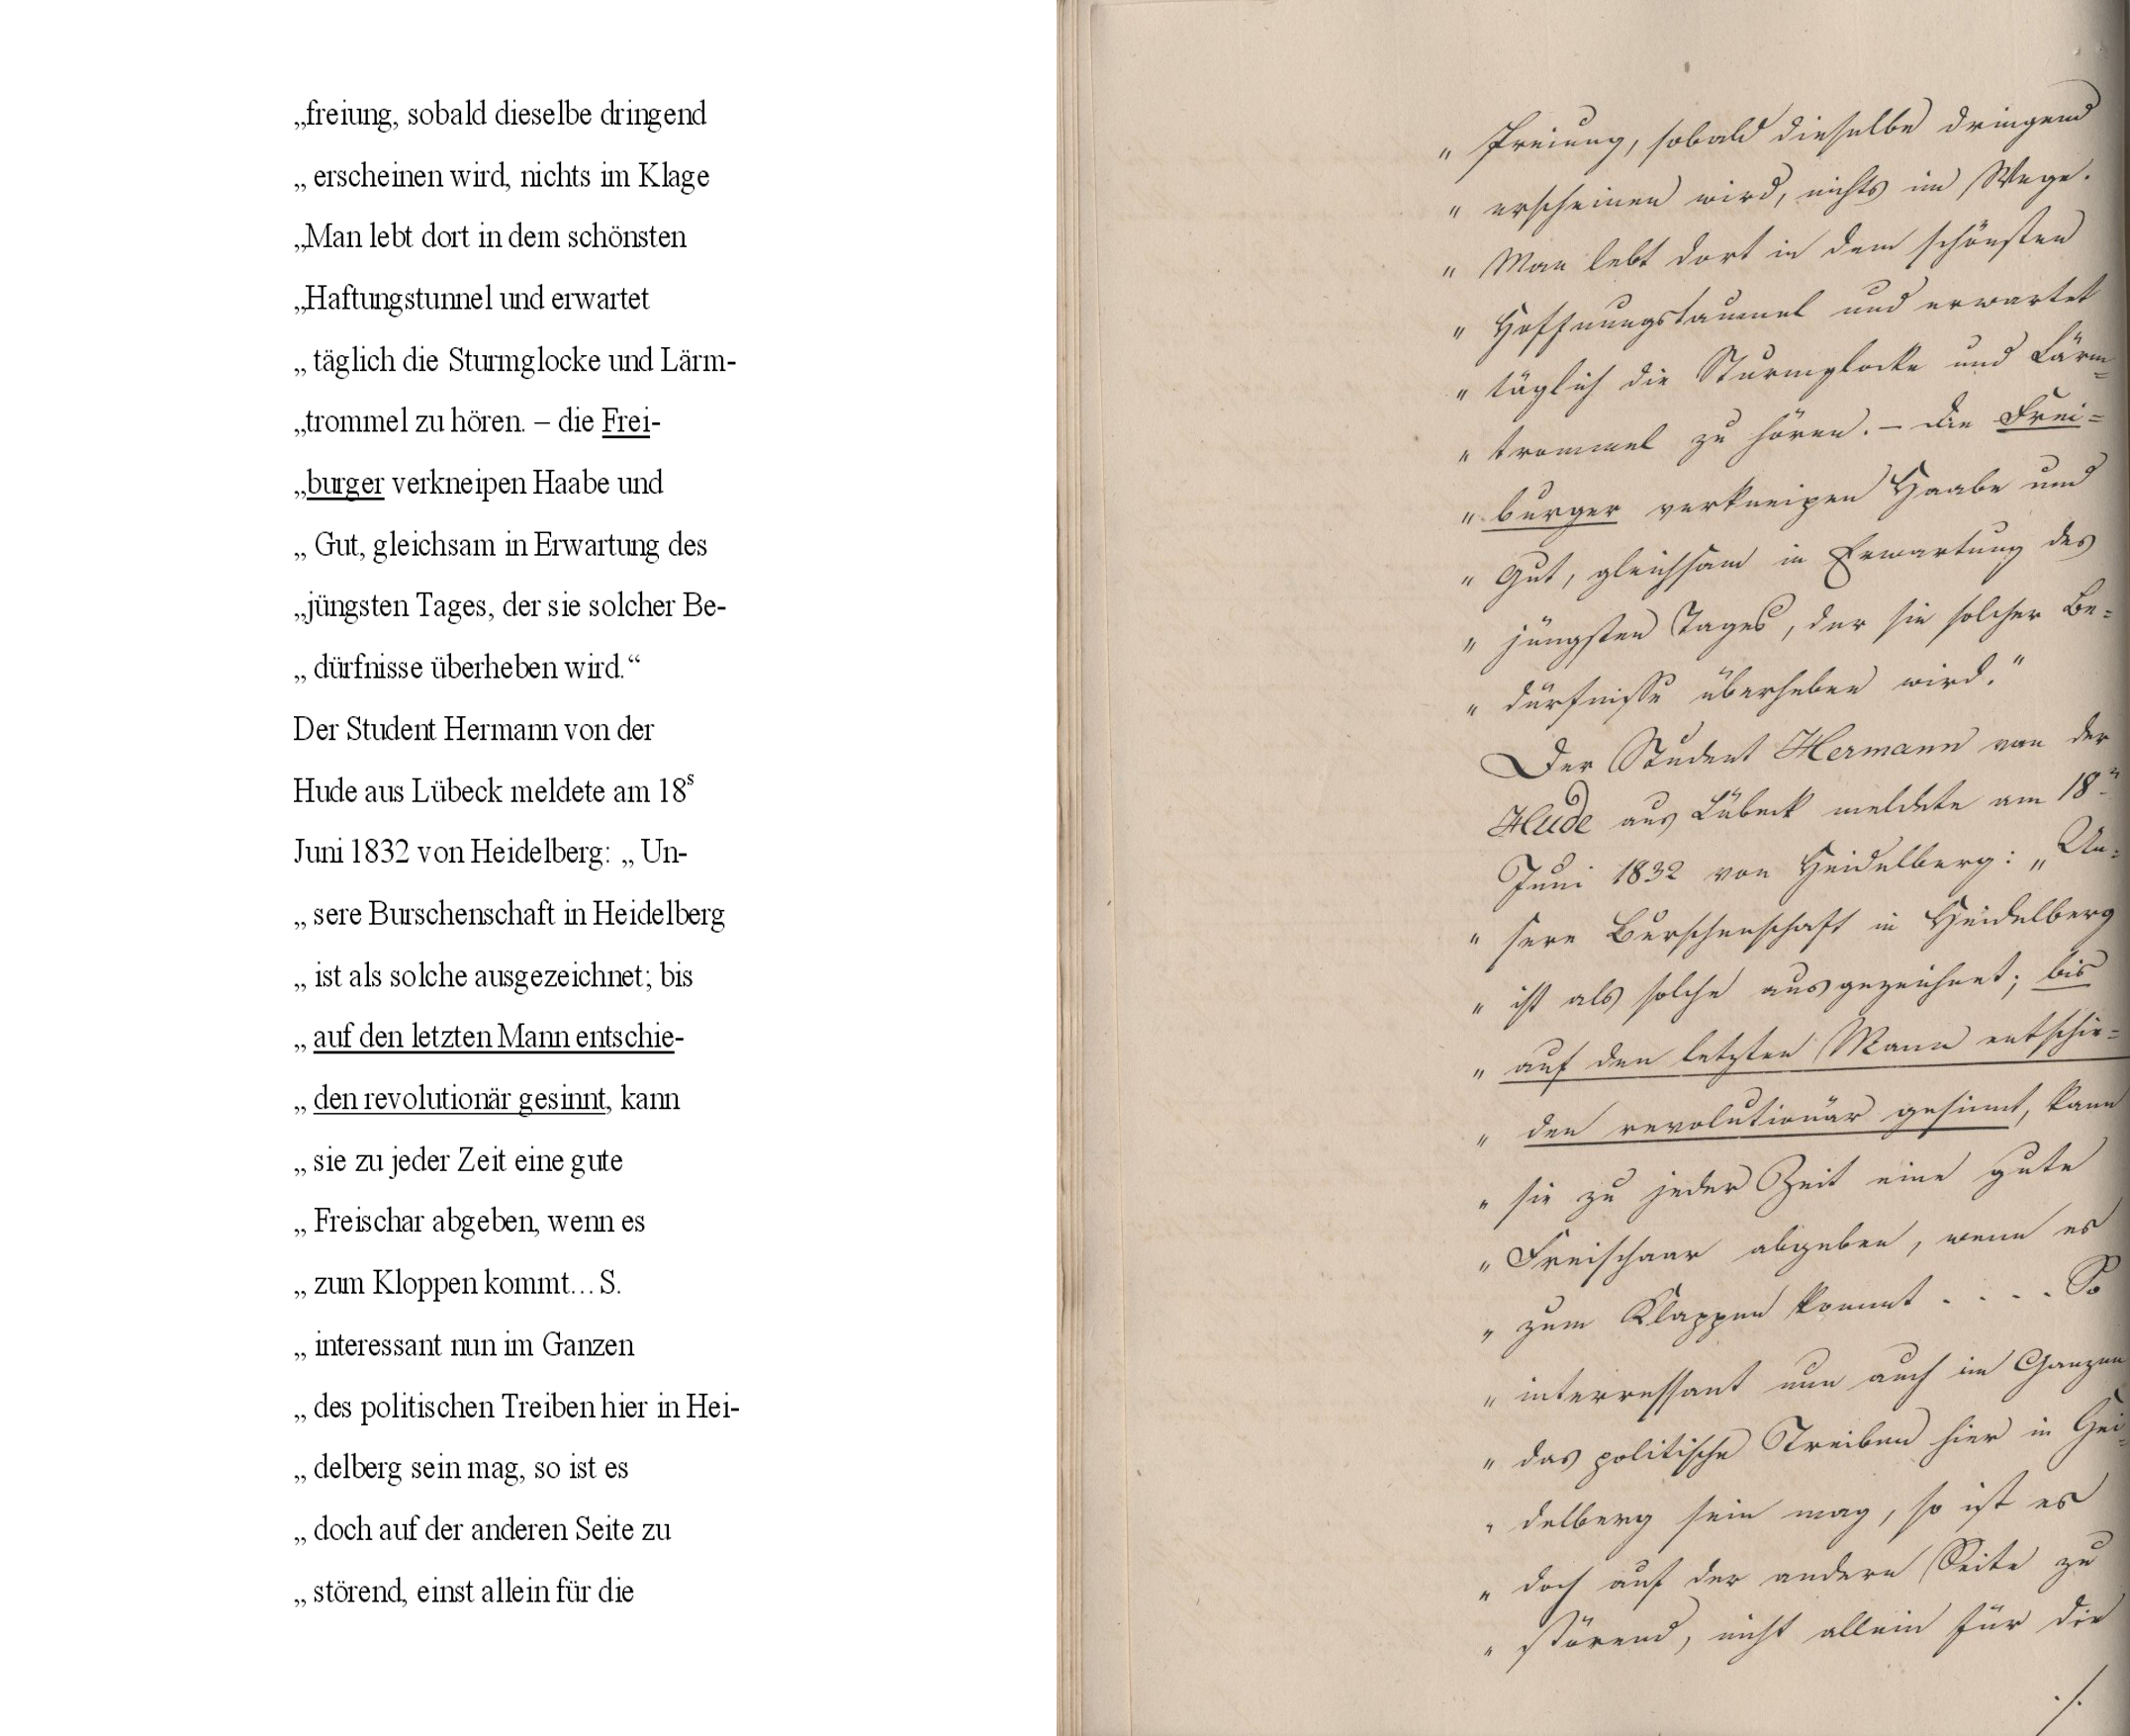 „freiung, sobald dieselbe dringend
„ erscheinen wird, nichts im Klage
„Man lebt dort in dem schönsten
„Haftungstunnel und erwartet
„ täglich die Sturmglocke und Lärm-
„trommel zu hören. – die Frei-
„burger verkneipen Haabe und
„ Gut, gleichsam in Erwartung des
„jüngsten Tages, der sie solcher Be-
„ dürfnisse überheben wird.“
Der Student Hermann von der
Hude aus Lübeck meldete am 18s
Juni 1832 von Heidelberg: „ Un-
„ sere Burschenschaft in Heidelberg
„ ist als solche ausgezeichnet; bis
„ auf den letzten Mann entschie-
„ den revolutionär gesinnt, kann
„ sie zu jeder Zeit eine gute
„ Freischar abgeben, wenn es
„ zum Kloppen kommt…S.
„ interessant nun im Ganzen
„ des politischen Treiben hier in Hei-
„ delberg sein mag, so ist es
„ doch auf der anderen Seite zu
„ störend, einst allein für die
" freiung, sobald dieselbe dringend
" erscheinen wird, nichts im Wege.
" Man lebt dort in dem schönsten
" Hoffnungstaumel und erwartet
" täglich die Sturmglocke und Lärm=
" trommel zu hören. – die Frei=
" burger verkneipen Haabe und
" Gut, gleichsam in Erwartung des
" jüngsten Tages, der sie solcher Be=
" dürfnisse überheben wird."
Der Student Hermann von der
Hude aus Lübeck meldete am 18n
Juni 1832 von Heidelberg: „Un=
" sere Burschenschaft in Heidelberg
" ist als solche ausgezeichnet; bis
" auf den letzten Mann entschie=
" den revolutionär gesinnt, kann
" sie zu jeder Zeit eine gute
" Freischaar abgeben, wenn es
" zum Klappen kommt . . . . So
" interressant nun auch im Ganzen
" das politische Treiben hier in Hei=
" delberg sein mag, so ist es
" doch auf der andern Seite zu
" störend, nicht allein für die
./.